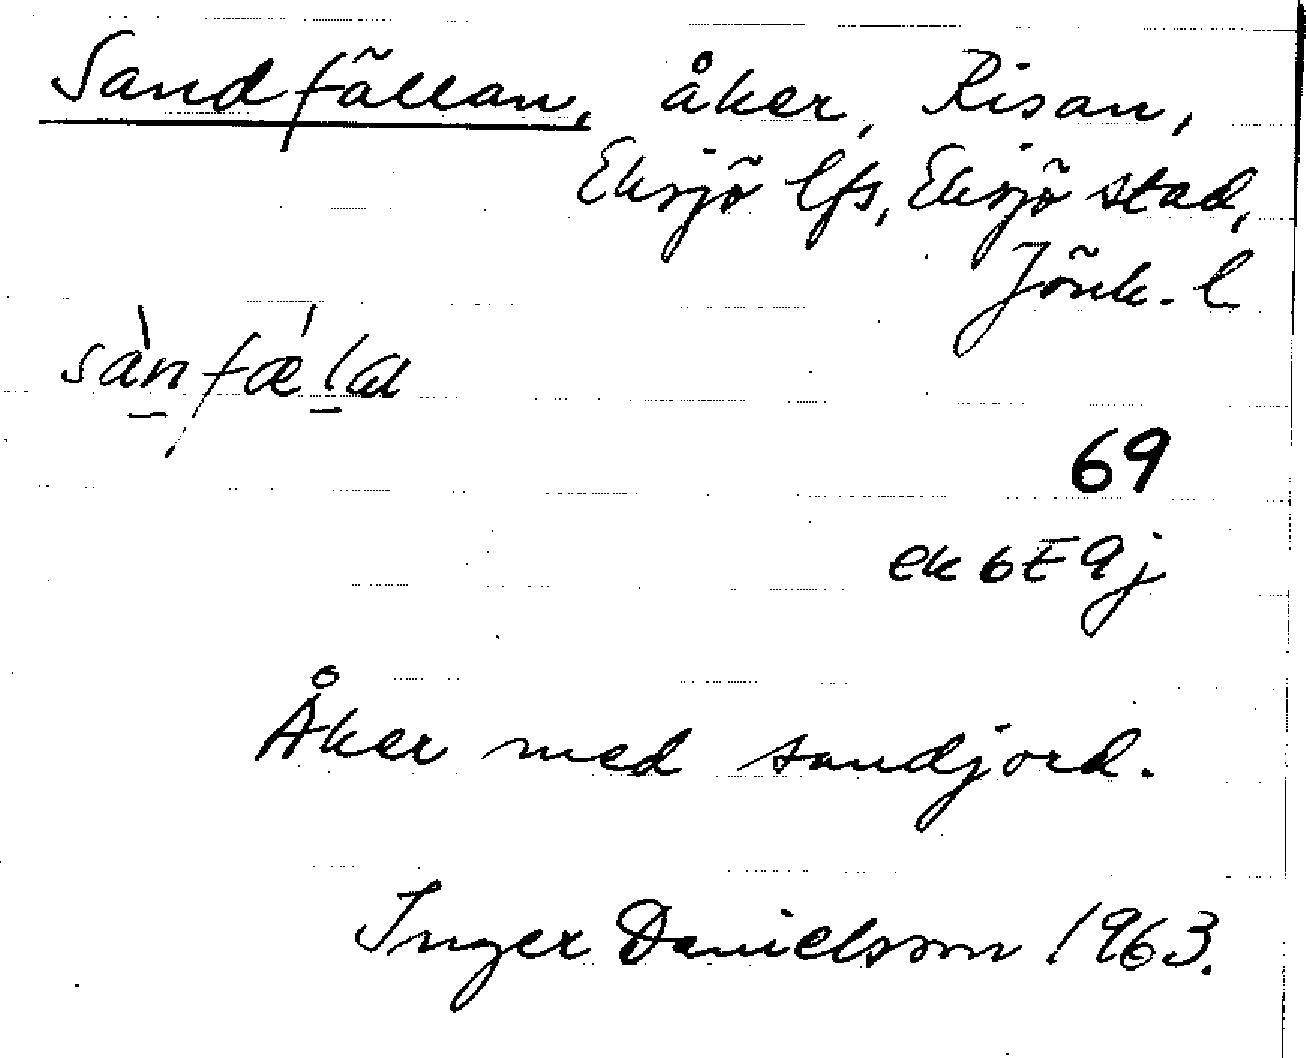 Sandfällan, åker, Risan,
Eksjö lfs, Eksjö stad,
Jönk. l
69
ek 6 E 9 j
Åker med sandjord.
Inger Danielsson 1963.